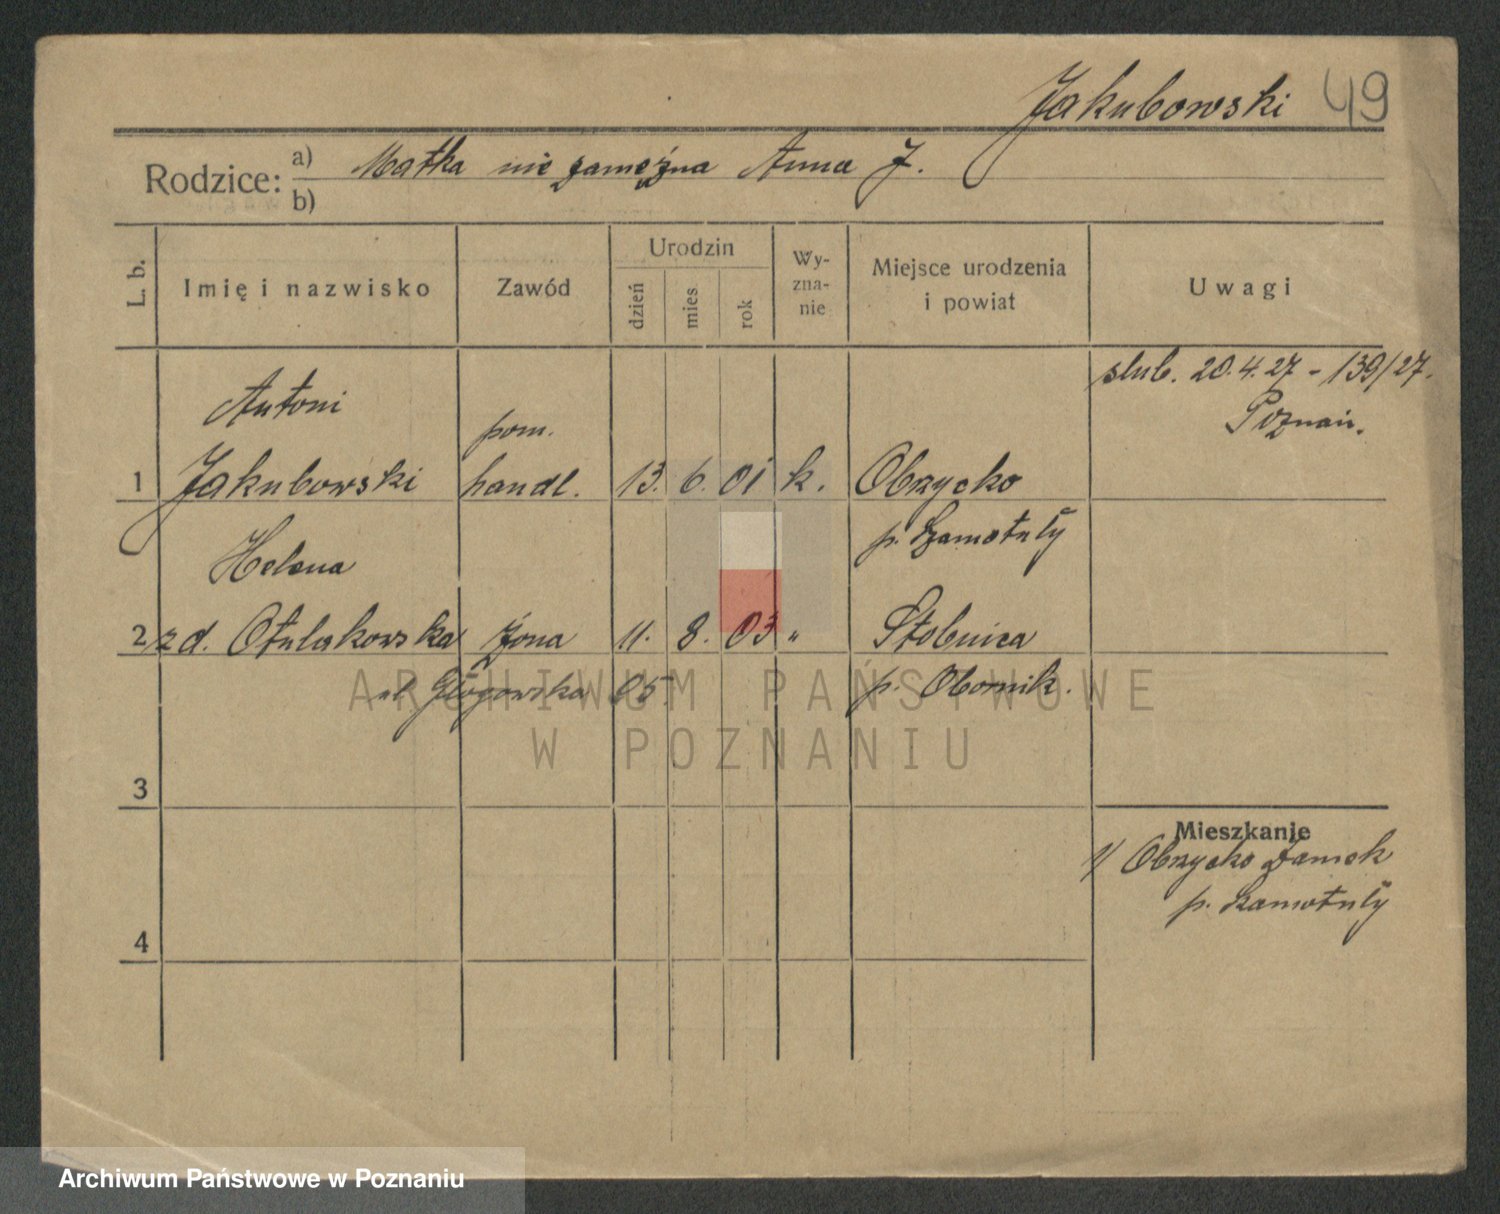 Jakubowski 49
Rodzice: a) Matka nie zamężna Anna J.
b)
L. b. Imię i nazwisko Zawód Urodzin dzień mies rok Wyznanie Miejsce urodzenia i powiat Uwagi
ślub. 20.4.27 - 139/27.
Poznań.
Antoni pom.
1 Jakubowski handl. 13. 6. 01 k. Obrzycko
p. Szamotuły
Helena
2 z d. Otulakowska żona 11. 8. 03 " Stobnica
ul. Głogowska 85 p. Obornik.
3
Mieszkanie
1/ Obrzycko Zamek
p. Szamotuły
4
ARCHIWUM PAŃSTWOWE
W POZNANIU
Archiwum Państwowe w Poznaniu